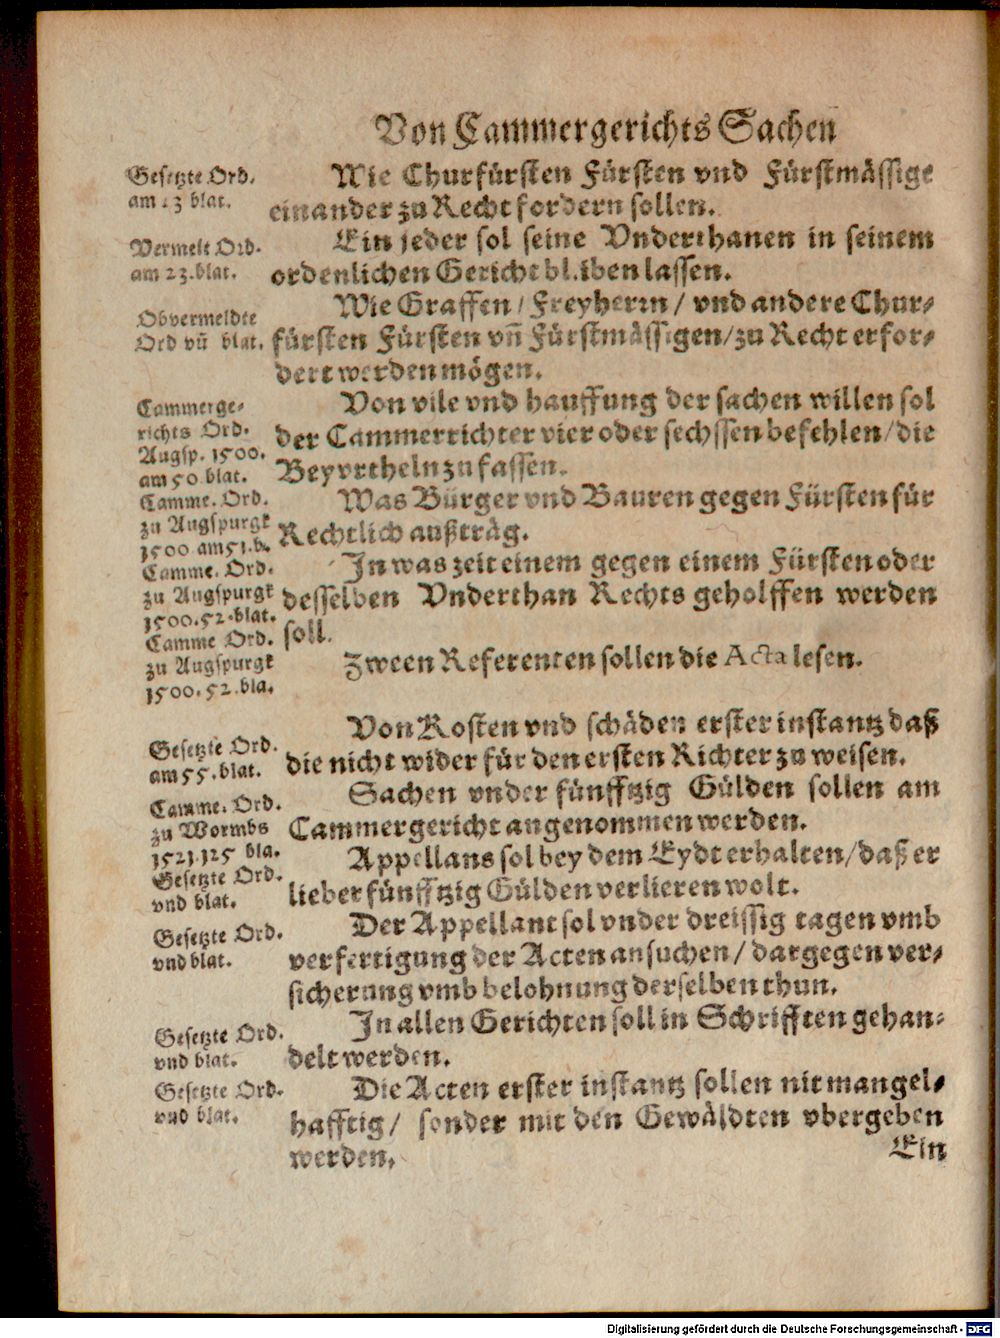 Von Cammergerichts Sachen
Gesetzte Ord.
am 23 blat.
Wie Churfürsten Fürsten vnd Fürstmässige
einander zu Recht fordern sollen.
Vermelt Ord.
am 23. blat.
Ein jeder sol seine Vnderthanen in seinem
ordenlichen Gericht bleiben lassen.
Obvermeldte
Ord vn̄ blat.
Wie Graffen / Freyherrn / vnd andere Chur-
fürsten Fürsten vn̄ Fürstmässigen / zu Recht erfor-
dert werden mögen.
Cammerge-
richts Ord.
Augsp. 1500.
am 50 blat.
Von vile vnd hauffung der sachen willen sol
der Cammerrichter vier oder sechssen befehlen / die
Beyvrtheln zu fassen.
Camme. Ord.
zu Augspurgk
1500 am 51. b.
Was Bürger vnd Bauren gegen Fürsten für
Rechtlich außträg.
Camme. Ord.
zu Augspurgk
1500. 52. blat.
In was zeit einem gegen einem Fürsten oder
desselben Vnderthan Rechts geholffen werden
soll.
Camme Ord.
zu Augspurgk
1500. 52. bla.
Zween Referenten sollen die Acta lesen.
Gesetzte Ord.
am 55. blat.
Von Kosten vnd schäden erster instantz daß
die nicht wider für den ersten Richter zu weisen.
Camme. Ord.
zu Wormbs
1521. 125 bla.
Sachen vnder fünfftzig Gülden sollen am
Cammergericht angenommen werden.
Gesetzte Ord.
vnd blat.
Appellans sol bey dem Eydt erhalten / daß er
lieber fünfftzig Gülden verlieren wolt.
Gesetzte Ord.
vnd blat.
Der Appellant sol vnder dreissig tagen vmb
verfertigung der Acten ansuchen / dargegen ver-
sicherung vmb belohnung derselben thun.
Gesetzte Ord.
vnd blat.
In allen Gerichten soll in Schrifften gehan-
delt werden.
Gesetzte Ord.
vnd blat.
Die Acten erster instantz sollen nit mangel-
hafftig / sonder mit den Gewäldten vbergeben
werden.
Ein
Digitalisierung gefördert durch die Deutsche Forschungsgemeinschaft - DFG